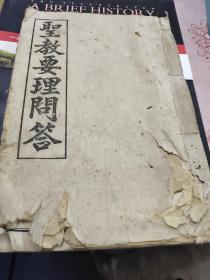 A BRIEF HISTORY
聖教要理問答